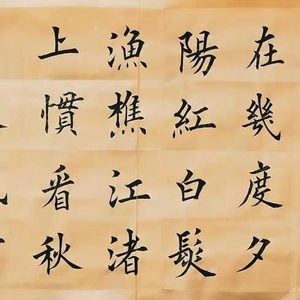 在幾度夕
陽紅白髮
漁樵江渚
上慣看秋